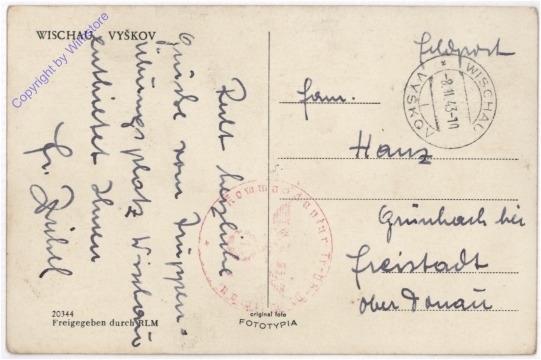 WISCHAU VYŠKOV
Copyright by Winstore
Recht herzliche
Grüße vom Truppen-
übungsplatz Wischau
entbietet Ihnen
Fr.
20344
Freigegeben durch RLM
original foto
FOTOTYPIA
Feldpost
WISCHAU
VYŠKOV
-8.11.43-10
Fam.
Hanz
Grünbach bei
Freistadt
Ober Donau
Kommandantur